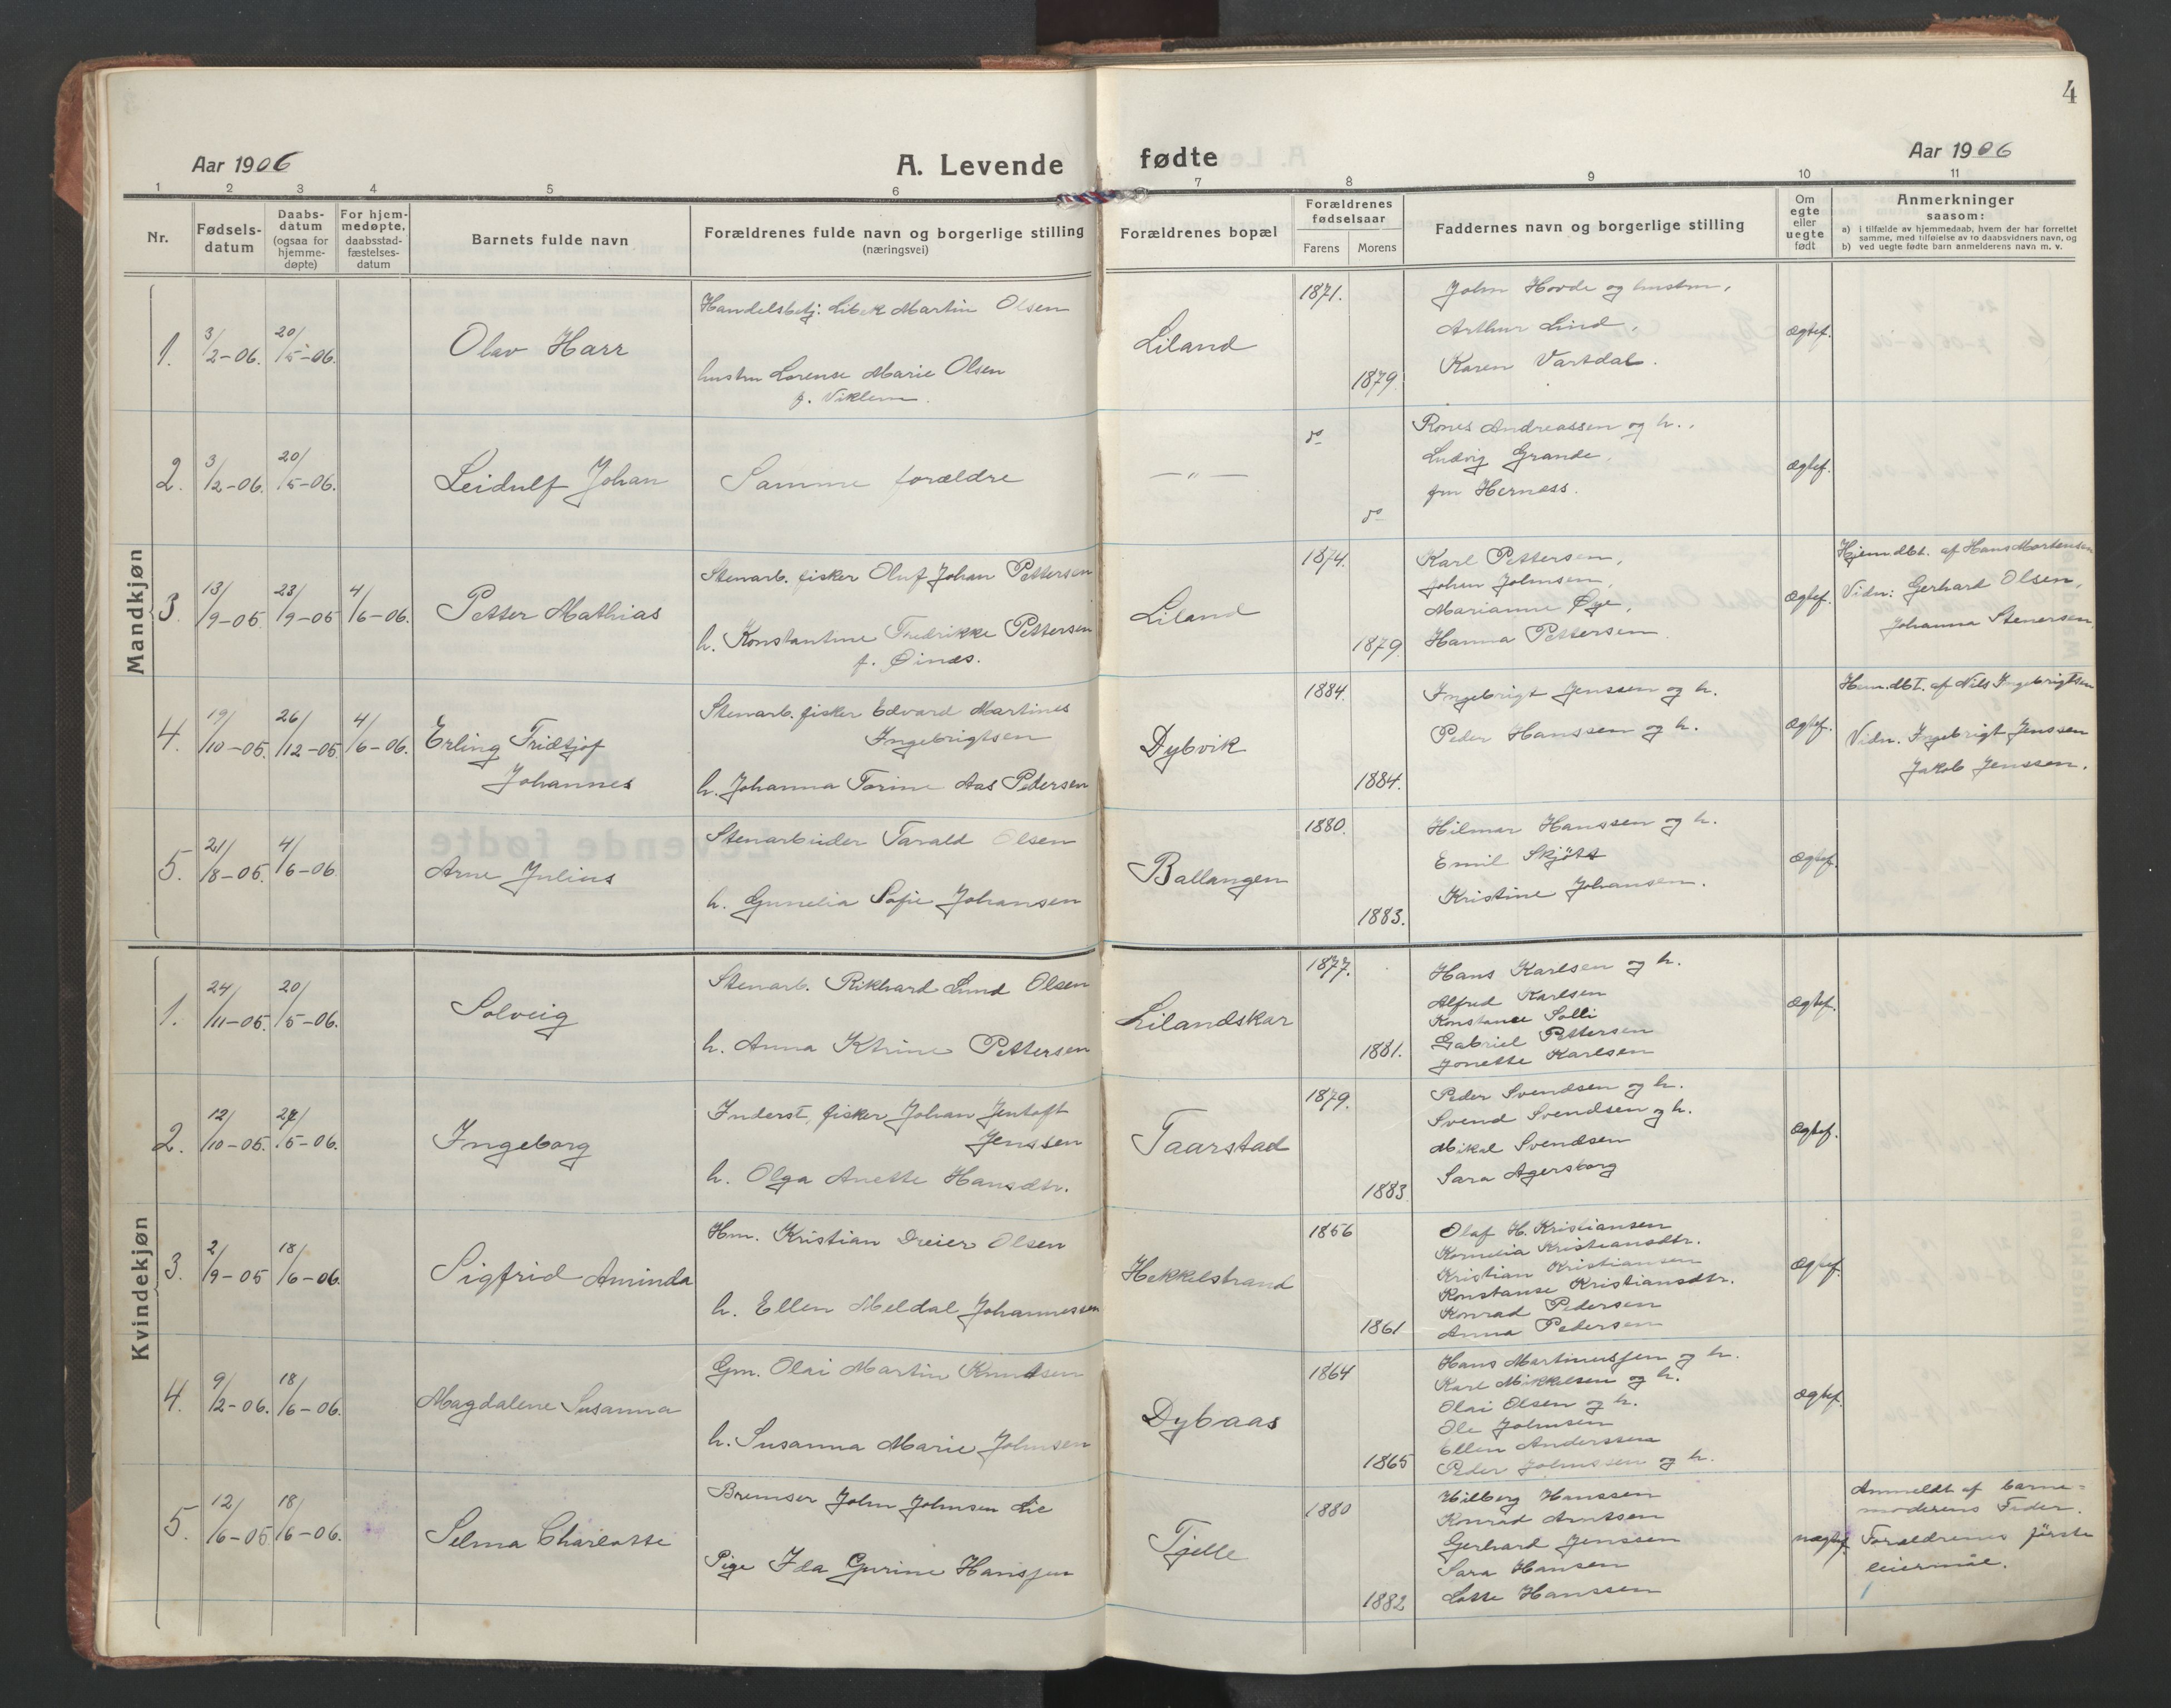 4
Aar 1906
A. Levende fødte
Aar 1906
1 2 3 4 5 6 7 8 9 10 11
Nr.
Fødsels-
datum
Daabs-
datum
(ogsaa for
hjemme-
døpte)
For hjem-
medøpte,
daabsstad-
fæstelses-
datum
Barnets fulde navn
Forældrenes fulde navn og borgerlige stilling
(næringsvei)
Forældrenes bopæl
Forældrenes
fødselsaar
Farens Morens
Faddernes navn og borgerlige stilling
Om
egte
eller
uegte
født
Anmerkninger
saasom:
a) i tilfælde av hjemmedaab, hvem der har forrettet
samme, med tilføielse av to daabsvidners navn, og
b) ved uegte fødte barn anmelderens navn m. v.
Mandkjøn
1. 3/2-06. 20/5-06.
Olav Harr
Handelsbetj. Martin Olsen
hustru Lorense Marie Olsen
f. Viklem.
Liland
1871.
1879.
John Hovde og hustru,
Arthur Lind,
Karen Vartdal.
ægtef.
2. 3/2-06. 20/5-06.
Leidulf Johan
Samme forældre
— " —
do
do
Rones Andreassen og h.,
Ludvig Grande,
fru Hernæss.
ægtef.
3. 13/9-05. 23/9-05 4/6-06.
Petter Mathias
Stenarb. fisker Oluf Johan Pettersen
h. Konstantine Fredrikke Pettersen
f. Øinæs.
Liland
1874.
1879.
Karl Pettersen,
Johan Johnsen,
Marianne Øye,
Hanna Pettersen.
ægtef.
Hjem.dbt. af Hans Mortensen
Vidn: Gerhard Olsen,
Johanna Stenersen.
4. 19/10-05. 26/12-05 4/6-06.
Erling Fridtjof
Johannes
Stenarb. fisker Edvard Martines
Ingebrigtsen
h. Johanna Torine Aas Pedersen
Dybvik
1884.
1884.
Ingebrigt Jenssen og h.
Peder Hanssen og h.
ægtef.
Hem.dbt. af Nils Ingebrigtsen
Vidn. Ingebrigt Jenssen
Jakob Jenssen.
5. 21/8-05. 4/6-06
Arne Julius
Stenarbeider Tarald Olsen
h. Gunelia Sofie Johansen
Ballangen
1880.
1883.
Hilmar Hanssen og h.
Emil Skjött
Kristine Johansen.
ægtef.
Kvindekjøn
1. 24/11-05. 20/5-06.
Solveig
Stenarb. Rikhard Lund Olsen
h. Anna Ktrine Pettersen
Lilandskar
1877.
1881.
Hans Karlsen og h.
Alfred Karlsen
Konstance Solli
Gabriel Pettersen
Jonette Karlsen
ægtef.
2. 12/10-05. 24/5-06.
Ingeborg
Inderst, fisker, Johan Jentoft
Jenssen
h. Olga Anette Hansdtr.
Taarstad
1879.
1883.
Peder Svendsen og h.
Svend Svendsen og h.
Mikal Svendsen
Sara Agersborg
ægtef.
3. 2/9-05 18/6-06.
Sigfrid Aminda
Hm. Kristian Dreier Olsen
h. Ellen Meldal Johannessen
Hekkelstrand
1856
1861
Olaf H. Kristiansen
Kornelia Kristiansdtr.
Kristian Kristiansen
Konstanse Kristiansdtr.
Konrad Pedersen
Anna Pedersen
ægtef.
4. 9/2-06. 18/6-06.
Magdalene Susanna
Gm. Olai Martin Knudsen
h. Susanna Marie Johnsen
Dybaas
1864
1865
Hans Martinussen og h.
Karl Mikkelsen og h.
Olai Olsen og h.
Ole Johnsen
Ellen Anderssen
Peder Johnssen og h.
ægtef.
5. 12/6-05 18/6-06.
Selma Charlotte
Bremser John Johnsen Lie
Pige Ida Gurine Hanssen
Tjelle
1880
1882
Hilberg Hanssen
Konrad Arntsen
Gerhard Jenssen
Sara Hansen
Lotte Hanssen
uægtef.
Anmeldt af barne-
moderens Fader.
Forældrenes første
leiermål.